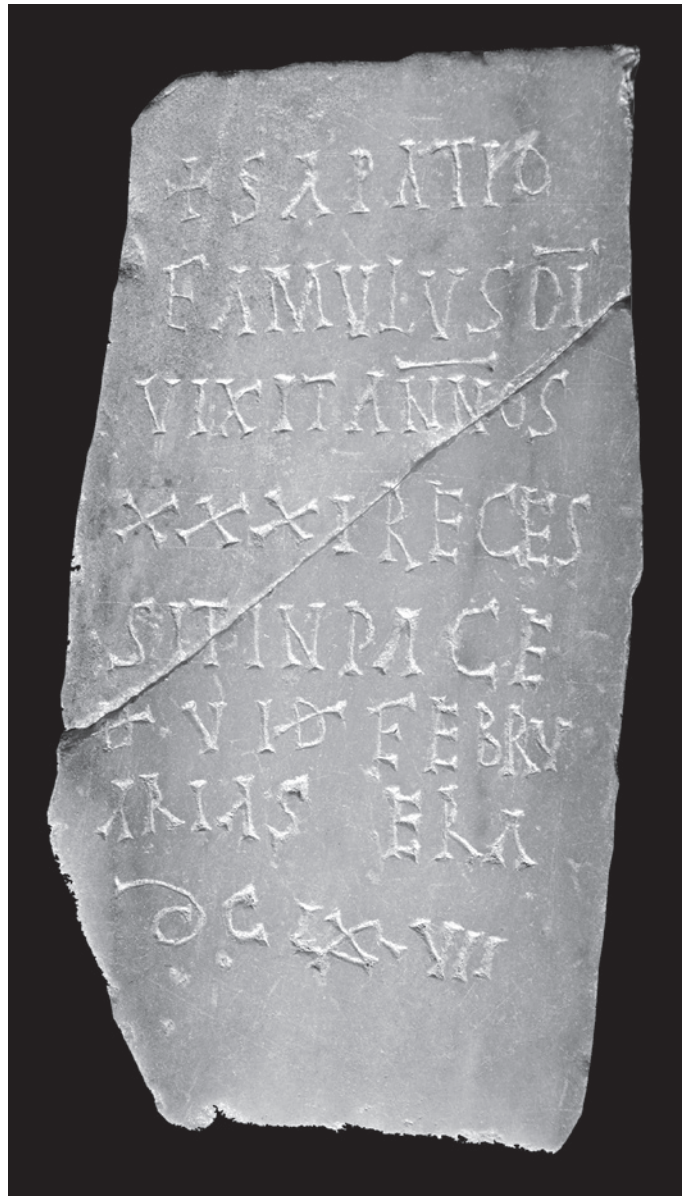 + SAPATIO
FAMVLVS D̅I̅
VIXIT AN̅N̅OS
XXXI RECES
SIT IN PACE
D V ID FEBRV
ARIAS ERA
DCLXVII